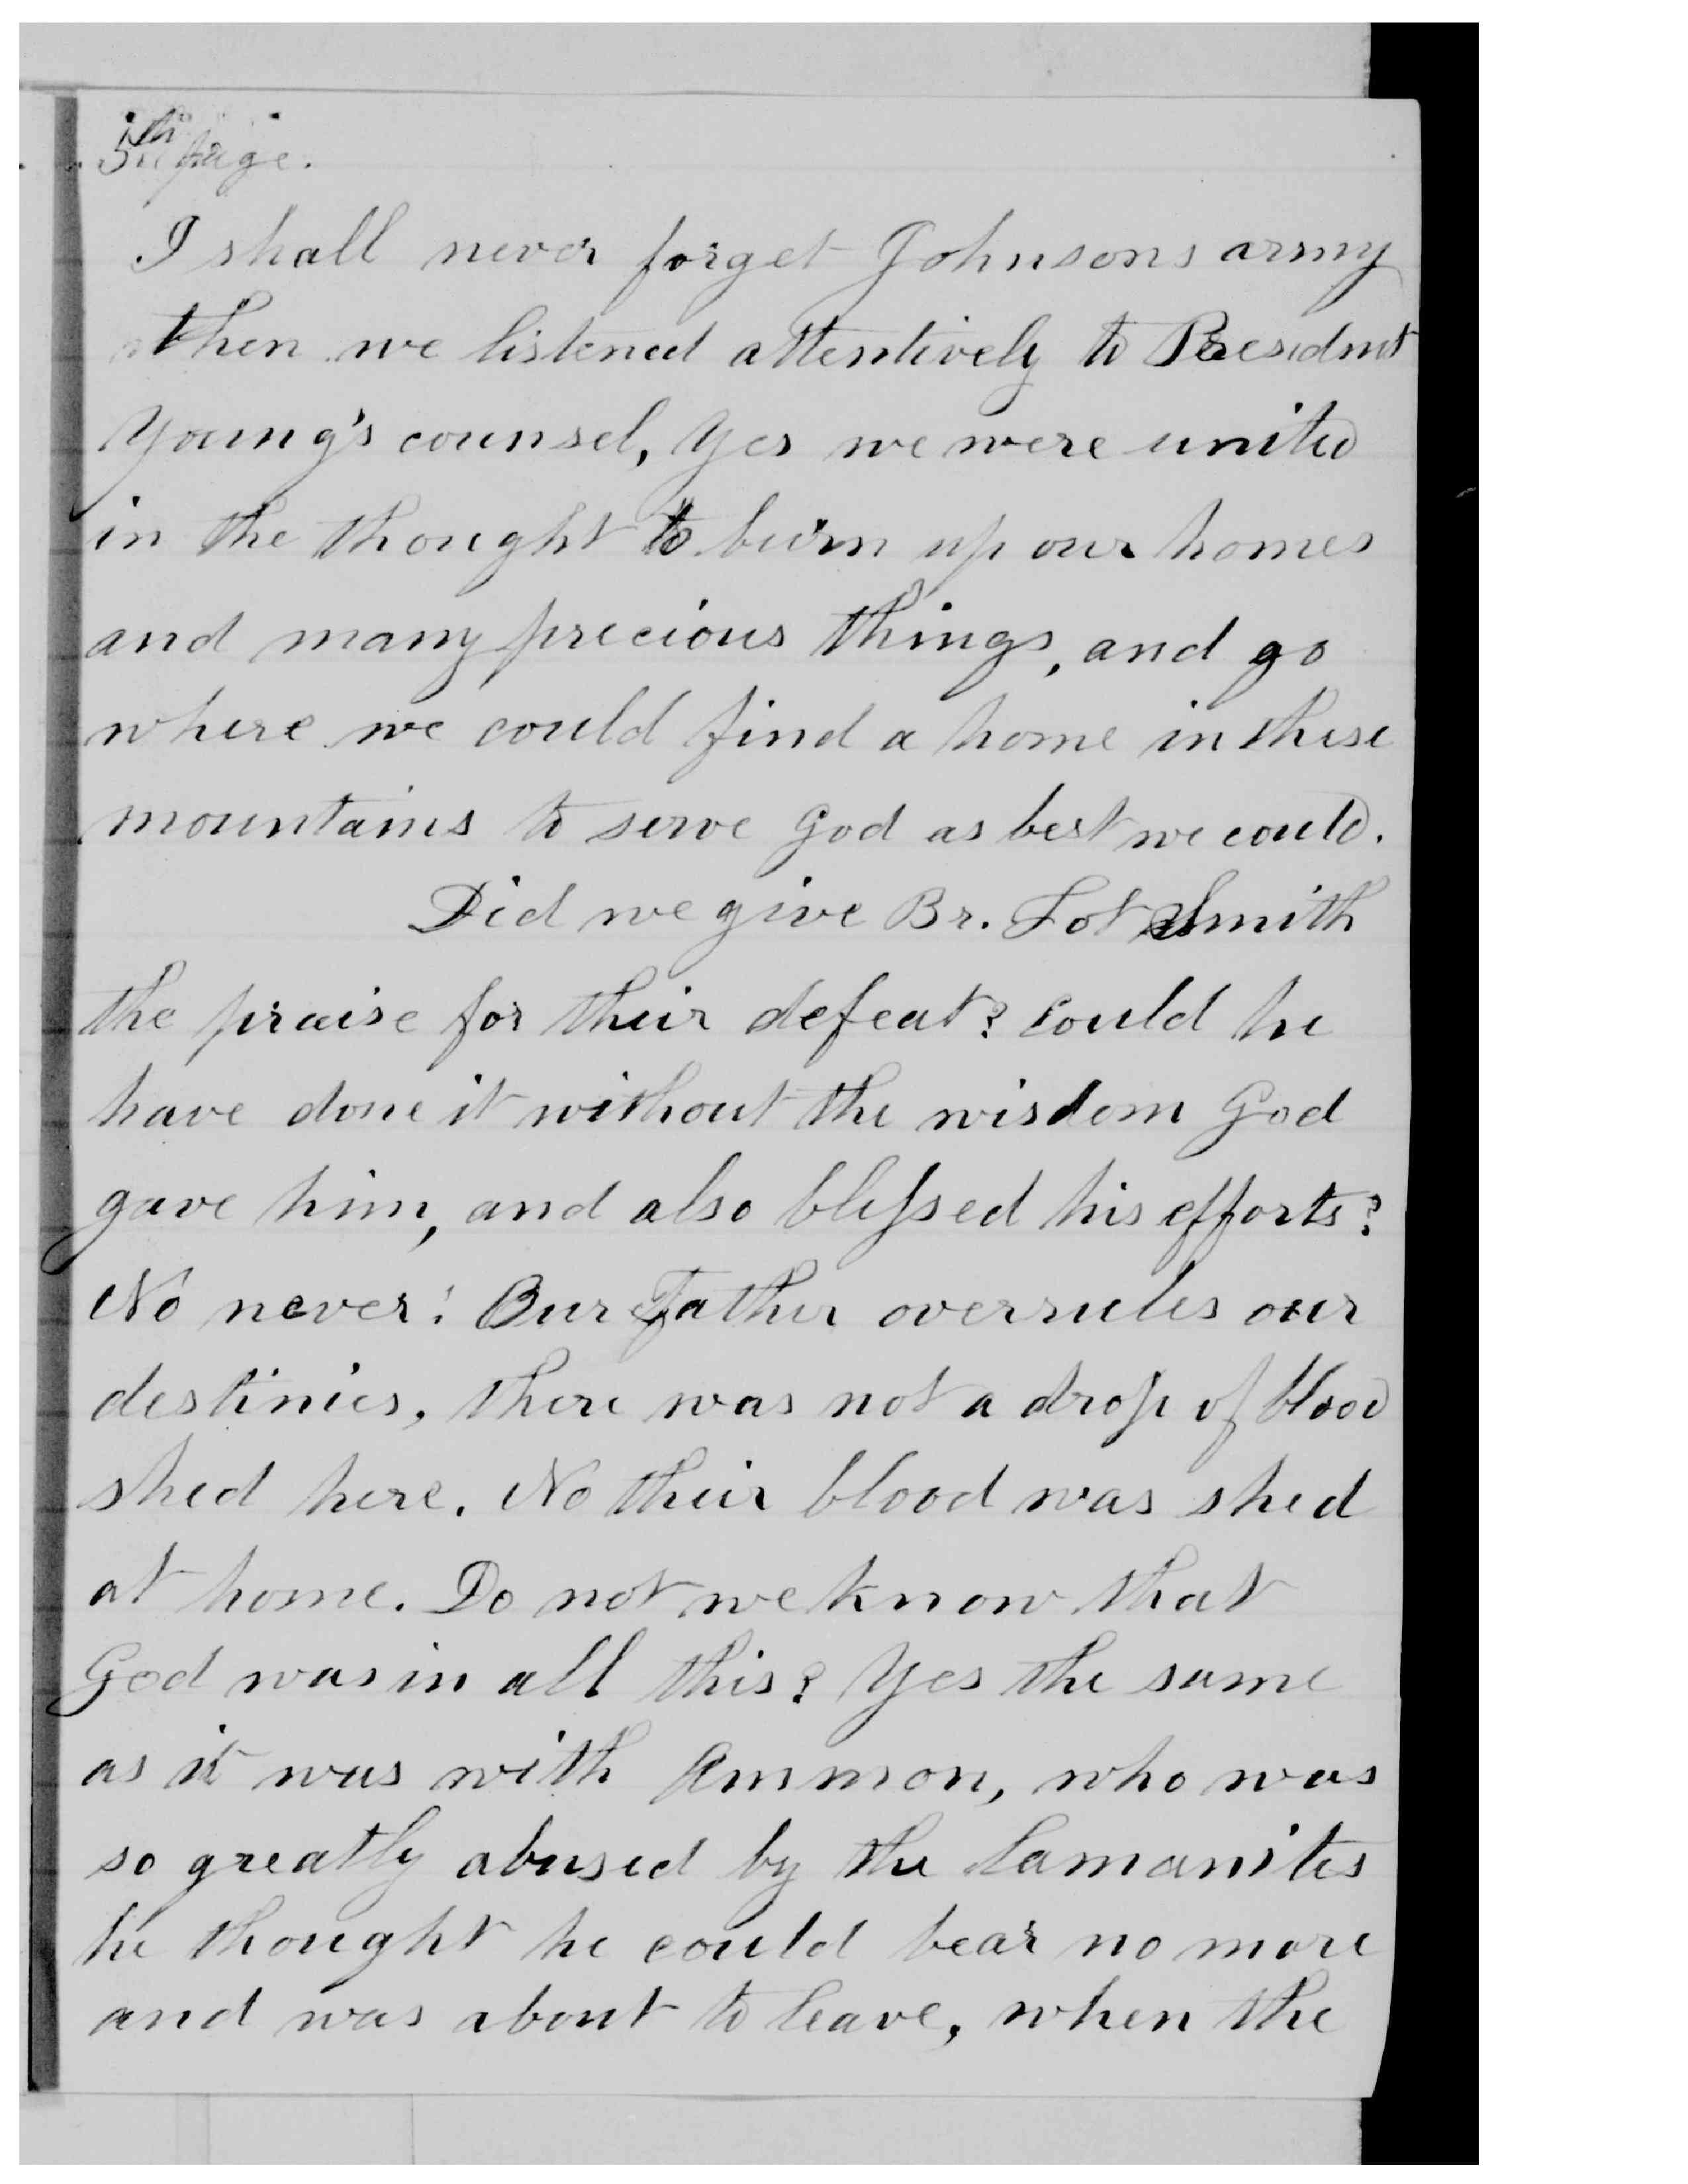 5th page.
I shall never forget Johnsons army
then we listened attentively to President
Young's counsel, Yes we were united
in the thought to burn up our homes
and many precious things, and go
where we could find a home in these
mountains to serve God as best we could.
Did we give Br. Lot Smith
the praise for their defeat? Could he
have done it without the wisdom God
gave him, and also blessed his efforts?
No never! Our Father overrules our
destinies, there was not a drop of blood
shed here. No their blood was shed
at home. Do not we know that
God was in all this? Yes the same
as it was with Ammon, who was
so greatly abused by the Lamanites
he thought he could bear no more
and was about to leave, when the